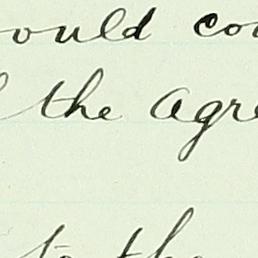 ould co
the agre
to the